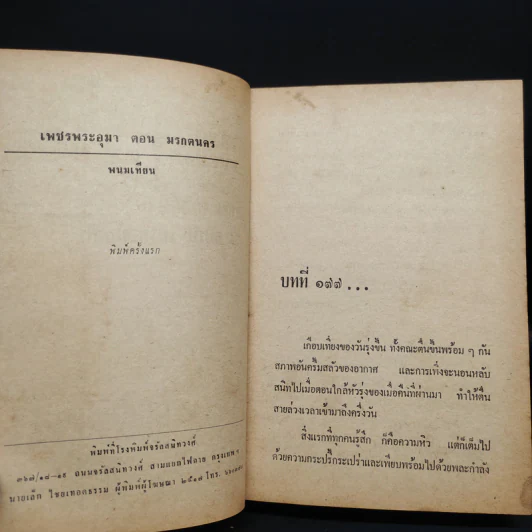 เพชรพระอุมา ตอน มรกตนคร
พนมเทียน
พิมพ์ครั้งแรก
พิมพ์ที่โรงพิมพ์จรัลสนิทวงศ์
๓๖๗/๑๘-๑๙ ถนนจรัลสนิทวงศ์ สามแยกไฟฉาย กรุงเทพ ฯ
นายเล็ก ไชยเทอดธรรม ผู้พิมพ์ผู้โฆษณา ๒๕๑๗ โทร.
บทที่ ๑๗๗...
เกือบเที่ยงของวันรุ่งขึ้น ทั้งคณะตื่นขึ้นพร้อม ๆ กัน
สภาพอันครึ้มสลัวของอากาศ และการเพิ่งจะนอนหลับ
สนิทไปเมื่อตอนใกล้หัวรุ่งของเมื่อคืนที่ผ่านมา ทำให้ตื่น
สายล่วงเวลาเข้ามาถึงครึ่งวัน
สิ่งแรกที่ทุกคนรู้สึก ก็คือความหิว แต่ก็เต็มไป
ด้วยความกระปรี้กระเปร่าและเพียบพร้อมไปด้วยพละกำลัง